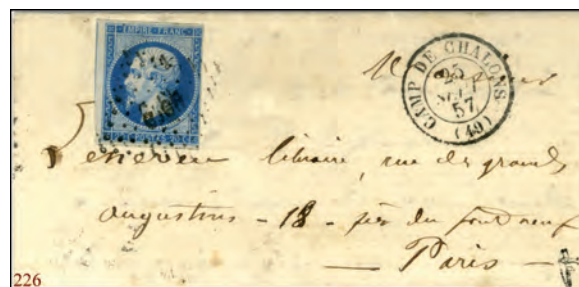 EMPIRE FRANC
CAMP DE CHALONS
25
57
(49)
libraire, rue des grands
augustins - 18 - près du pont neuf
- Paris -
226